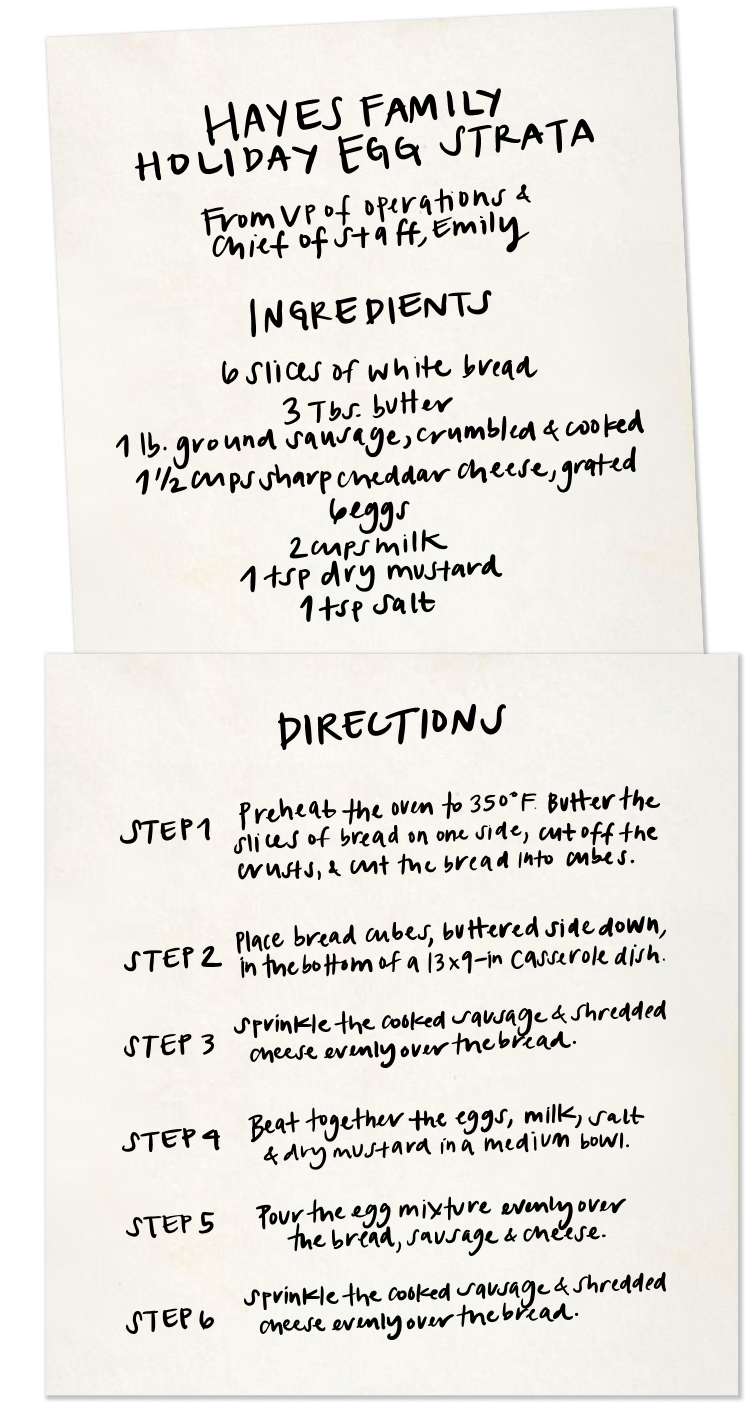 HAYES FAMILY
HOLIDAY EGG STRATA
From VP of operations &
Chief of Staff, Emily
INGREDIENTS
6 slices of white bread
3 Tbs. butter
1 lb. ground sausage, crumbled & cooked
1 1/2 cups sharp cheddar cheese, grated
6 eggs
2 cups milk
1 tsp dry mustard
1 tsp salt
DIRECTIONS
STEP 1
Preheat the oven to 350°F. Butter the
slices of bread on one side, cut off the
crusts, & cut the bread into cubes.
STEP 2
Place bread cubes, buttered side down,
in the bottom of a 13x9-in casserole dish.
STEP 3
Sprinkle the cooked sausage & shredded
cheese evenly over the bread.
STEP 4
Beat together the eggs, milk, salt
& dry mustard in a medium bowl.
STEP 5
Pour the egg mixture evenly over
the bread, sausage & cheese.
STEP 6
Sprinkle the cooked sausage & shredded
cheese evenly over the bread.